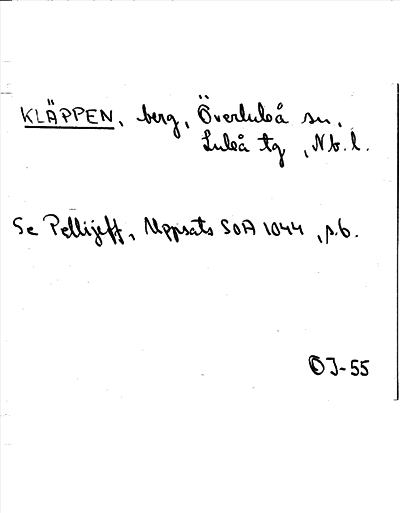 KLÄPPEN, berg, Överluleå sn,
Luleå tg, Nb. l.
Se Pellijeff, Uppsats SOA 1044, s. 6.
OJ-55